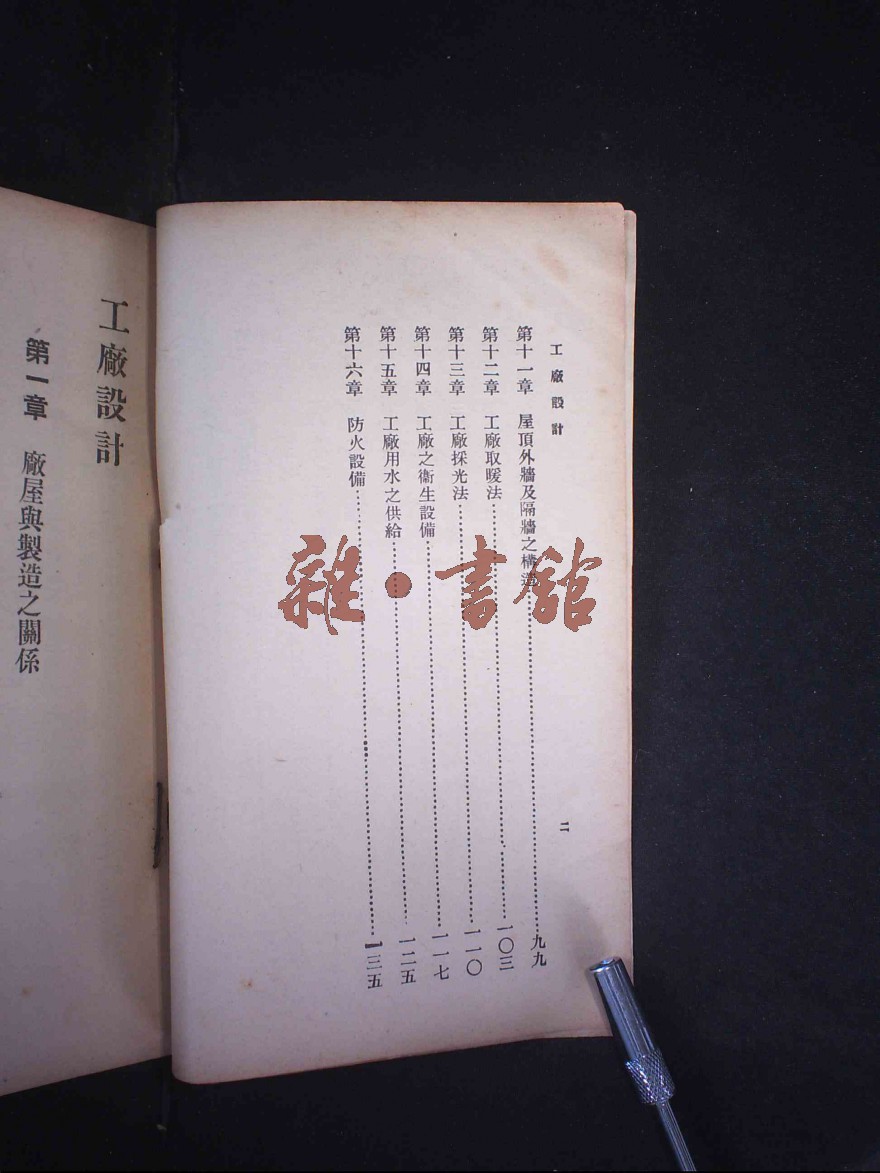 工廠設計
二
第十一章　屋頂外牆及隔牆之構造……九九
第十二章　工廠取暖法……一〇三
第十三章　工廠採光法……一一〇
第十四章　工廠之衞生設備……一一七
第十五章　工廠用水之供給……一二五
第十六章　防火設備……一三五
工廠設計
第一章　廠屋與製造之關係
雜·書館